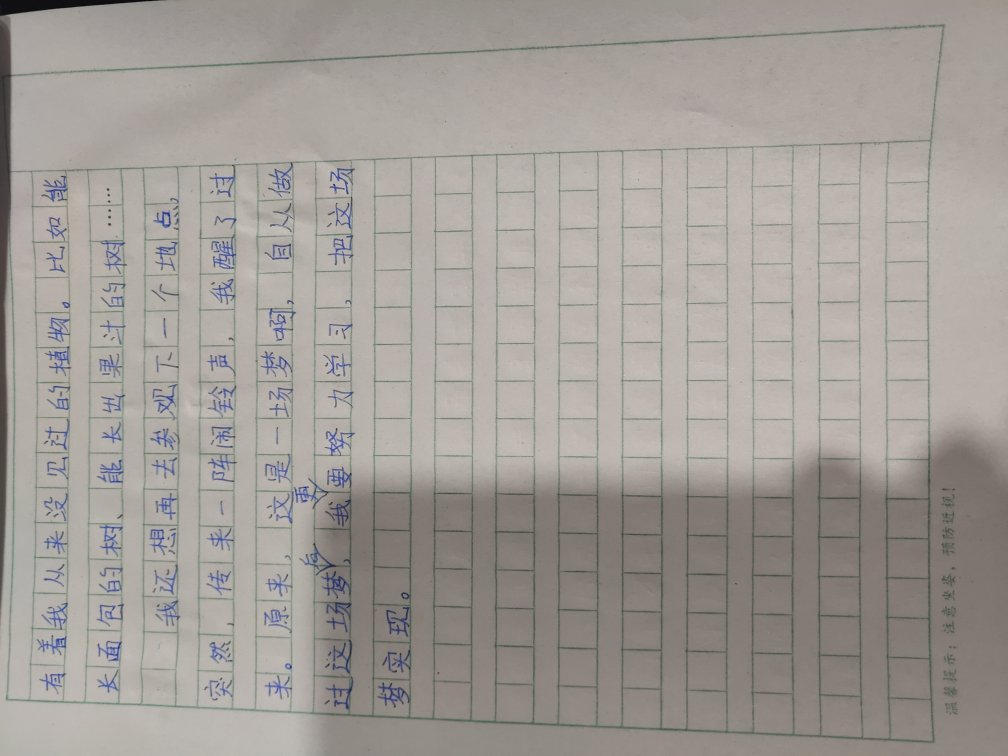 有着我从来没见过的植物。比如能
长面包的树、能长出果汁的树……
我还想再去参观下一个地点，
突然，传来一阵闹铃声，我醒了过
来。原来，这是一场梦啊，自从做
过这场梦后，我更要努力学习，把这场
梦实现。
温馨提示：注意坐姿，预防近视！